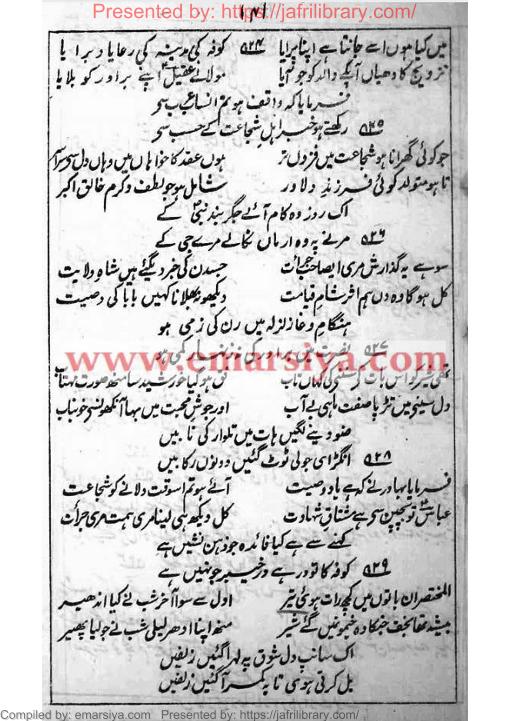 Presented by: https://jafrilibrary.com/
میں کیا ہوں اسے جانتا ہے اپنا پرایا ۵۲۴ کوفہ کی مدینہ کی رعایا و برایا
تزویج کا دھیاں آپکے والد کو جو آیا مولا نے عقیل اپنے برادر کو بلایا
فرمایا کہ واقف ہو تم انسابِ عرب سے
۵۲۵ رکھتے ہو خبر اہلِ شجاعت کے حسب سے
جو کوئی گھرانا ہو شجاعت میں فزوں تر ہوں عقد کا خواہاں میں وہاں دل سے سراسر
تا ہو متولد کوئی فرزندِ دلاور شامل ہو جو لطف و کرمِ خالقِ اکبر
اک روز وہ کام آئے جگر بندِ نبیؐ کے
۵۲۶ مرنے پہ وہ ارماں نکالے مرے جی کے
سو ہے یہ گذارش مری ایصاحبِ جرأت جس دن کی خبر دیگئے ہیں شاہِ ولایت
کل ہوگا وہ دن ہم اثرِ شامِ قیامت دیکھو نہ بھلانا کہیں بابا کی وصیت
ہنگامِ وغا زلزلہ میں رن کی زمی ہو
۵۲۷ نصرت میں برادر کی نہ زنہار کمی ہو
www.emarsiya.com
تھی شیر کو اس بات کے سننے کی کہاں تاب
دل سینے میں تڑپا صفتِ ماہیِ بے آب اور جوشِ محبت میں بہا آنکھوں سے خونباب
ضو دینے لگیں ہات میں تلوار کی نابیں
۵۲۸ انگڑائی جو لی ٹوٹ گئیں دونوں رکابیں
فرمایا بہادر نے کہ ہے یاد وصیت آئے ہو تم اسوقت دلانے کو شجاعت
عباسؑ تو بچپن سے ہے مشتاقِ شہادت کل دیکھ ہی لینا مری ہمت مری جرأت
کہنے سے ہے کیا فائدہ جو ذہن نشیں ہے
۵۲۹ کوفہ کا تو در ہے درِ خیبر جو نہیں ہے
المختصر ان باتوں میں کچھ رات ہوئی تیر اول سے سوا آخرِ شب نے کیا اندھیر
بیشہ تھا نجف جنکا وہ خیموں میں گئے شیر منھ اپنا ادھر لیلیِ شب نے جو لیا پھیر
اک سانپ دل شوق پہ لہرا گئیں زلفیں
بل کرتی ہوئی تا بہ کمر آ گئیں زلفیں
Compiled by: emarsiya.com Presented by: https://jafrilibrary.com/